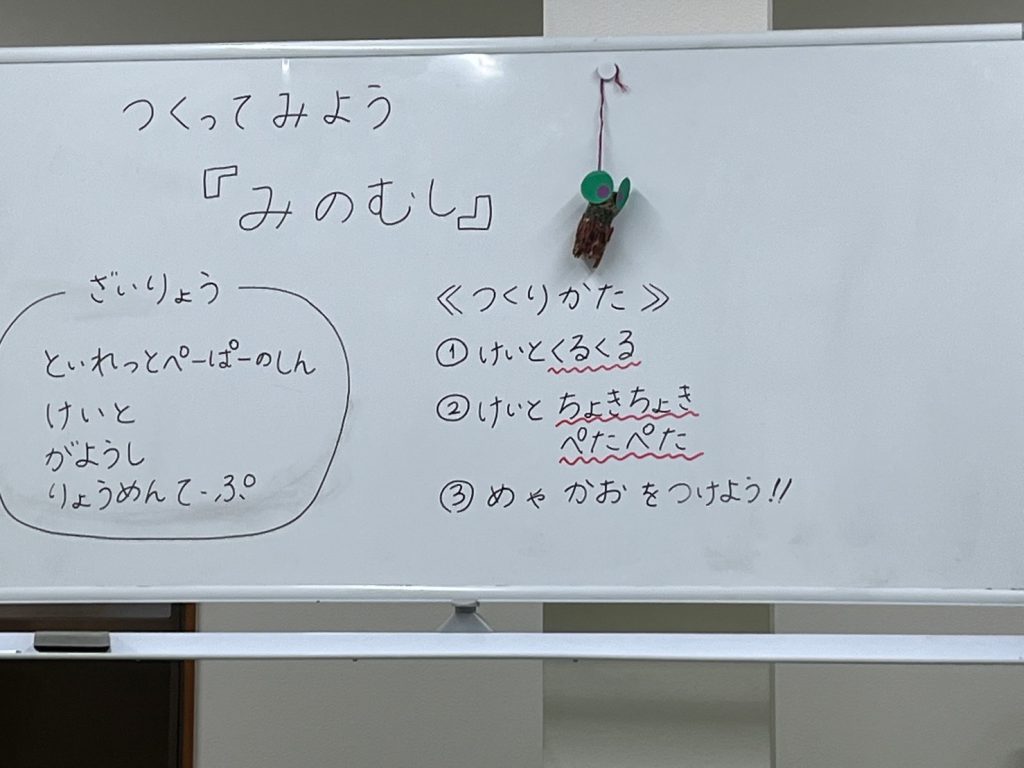 つくってみよう
『みのむし』
ざいりょう
といれっとぺーぱーのしん
けいと
がようし
りょうめんてーぷ
≪つくりかた≫
① けいとくるくる
② けいと ちょきちょき
ぺたぺた
③ めや かお をつけよう!!